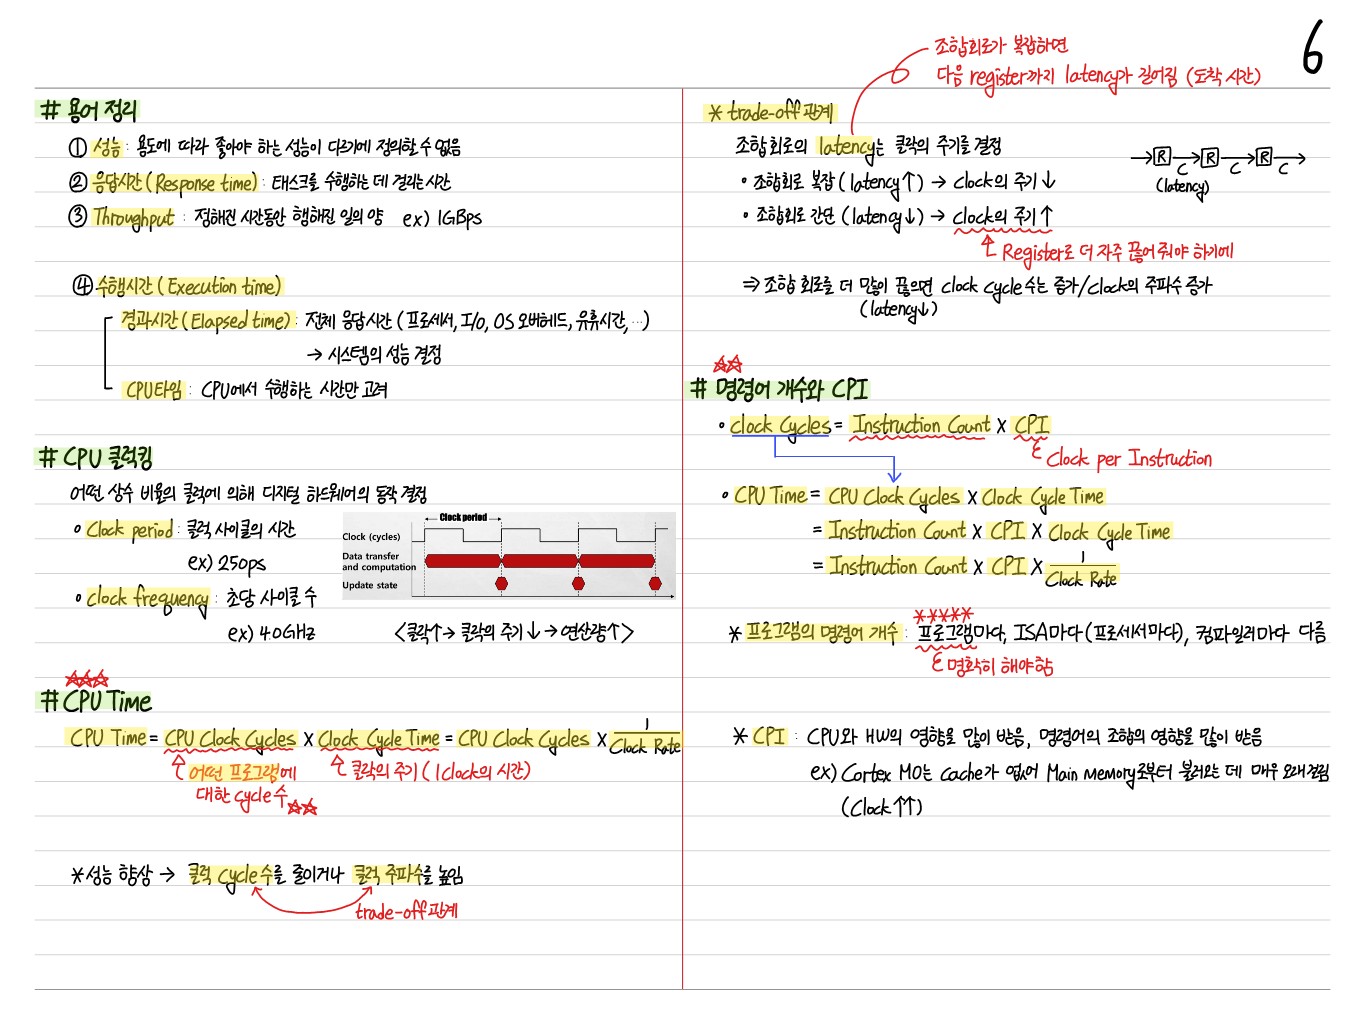 6
# 용어 정리
① 성능 : 용도에 따라 좋아야 하는 성능이 다르기에 정의할 수 없음
② 응답시간 (Response time) : 태스크를 수행하는 데 걸리는 시간
③ Throughput : 정해진 시간동안 행해진 일의 양 ex) 1GBps
④ 수행시간 (Execution time)
경과시간 (Elapsed time) : 전체 응답시간 (프로세서, I/O, OS 오버헤드, 유휴시간, …)
→ 시스템의 성능 결정
CPU타임 : CPU에서 수행하는 시간만 고려
# CPU 클럭킹
어떤 상수 비율의 클럭에 의해 디지털 하드웨어의 동작 결정
• Clock period : 클럭 사이클의 시간
ex) 250ps
• clock frequency : 초당 사이클 수
ex) 4.0GHz
Clock period
Clock (cycles)
Data transfer
and computation
Update state
<클락↑ → 클락의 주기↓ → 연산량↑>
☆☆☆
# CPU Time
CPU Time = CPU Clock Cycles × Clock Cycle Time = CPU Clock Cycles × 1/Clock Rate
어떤 프로그램에
대한 cycle 수 ☆☆
클락의 주기 (1clock의 시간)
*성능 향상 → 클럭 cycle 수를 줄이거나 클럭 주파수를 높임
trade-off 관계
조합회로가 복잡하면
다음 register까지 latency가 길어짐 (도착 시간)
* trade-off 관계
조합회로의 latency는 클락의 주기를 결정
• 조합회로 복잡 (latency↑) → clock의 주기↓
• 조합회로 간단 (latency↓) → clock의 주기↑
Register로 더 자주 끊어줘야 하기에
→ R → R → R →
C C C
(latency)
⇒ 조합 회로를 더 많이 끊으면 clock cycle 수는 증가/clock의 주파수 증가
(latency↓)
☆☆
# 명령어 개수와 CPI
• clock Cycles = Instruction Count × CPI
Clock per Instruction
• CPU Time = CPU Clock Cycles × Clock Cycle Time
= Instruction Count × CPI × Clock Cycle Time
= Instruction Count × CPI × 1/Clock Rate
*****
* 프로그램의 명령어 개수 : 프로그램마다, ISA마다 (프로세서마다), 컴파일러마다 다름
명확히 해야함
* CPI : CPU와 HW의 영향을 많이 받음, 명령어의 조합의 영향을 많이 받음
ex) Cortex M0는 cache가 없어 Main memory로부터 불러오는 데 매우 오래걸림
(Clock↑↑)